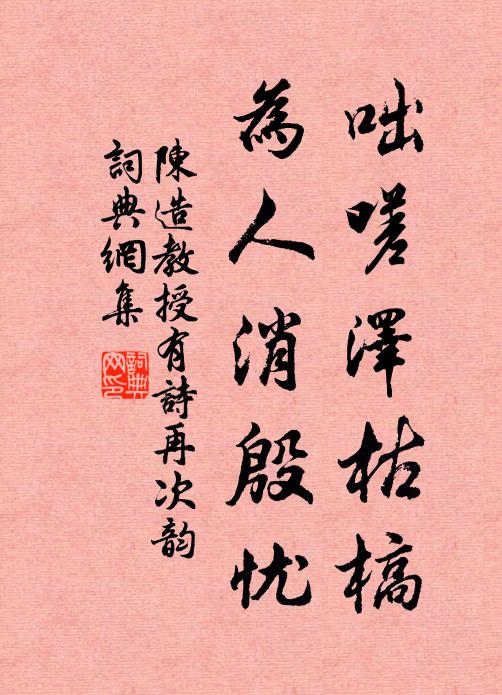 咄嗟澤枯槁
為人消殷忧
陳造教授有詩再次韵
詞典網集
詞典网印